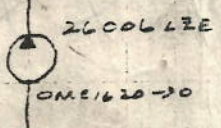 26006 LZE
OMC1620-30